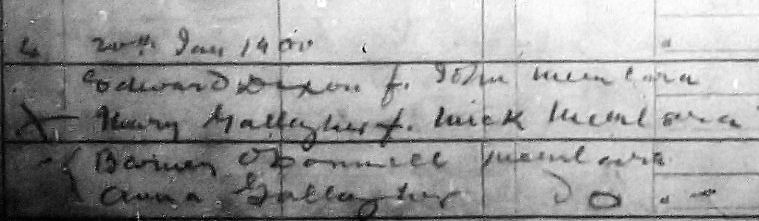 4 20th Jan 1900
Edward Dixon f. John Meenlara
Mary Gallagher f. Mick Meenlara
Barney O'Donnell Meenlara
Anna Gallagher Do